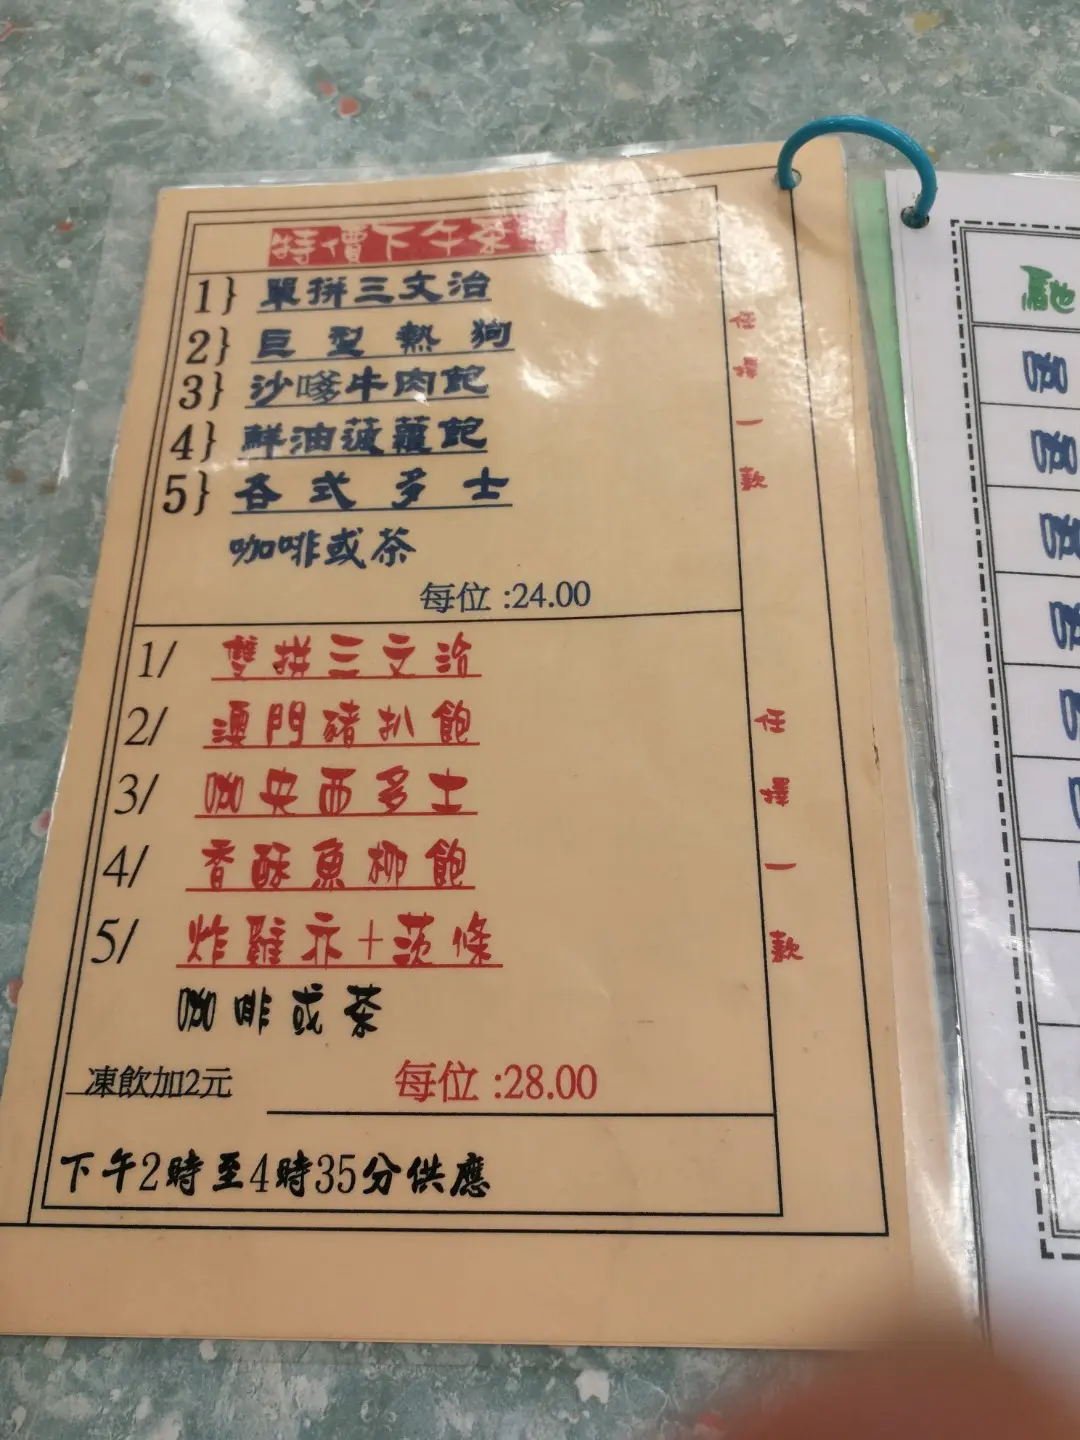 特價下午茶餐
1} 單拼三文治
2} 巨型熱狗
3} 沙嗲牛肉飽
4} 鮮油菠蘿飽
5} 各式多士
咖啡或茶
每位 :24.00
任擇一款
1/ 雙拼三文治
2/ 澳門豬扒飽
3/ 咖央西多士
4/ 香酥魚柳飽
5/ 炸雞亦+茨條
咖啡或茶
凍飲加2元
每位 :28.00
任擇一款
下午2時至4時35分供應